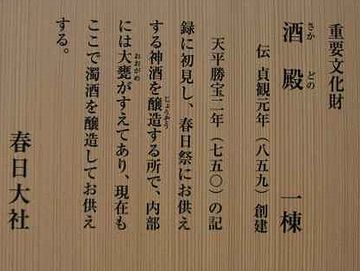 重要文化財
酒殿 一棟
さかどの
伝 貞観元年（八五九）創建
天平勝宝二年（七五〇）の記
録に初見し、春日祭にお供え
する神酒を醸造する所で、内部
じょうぞう
には大甕がすえてあり、現在も
おおがめ
ここで濁酒を醸造してお供え
する。
春日大社